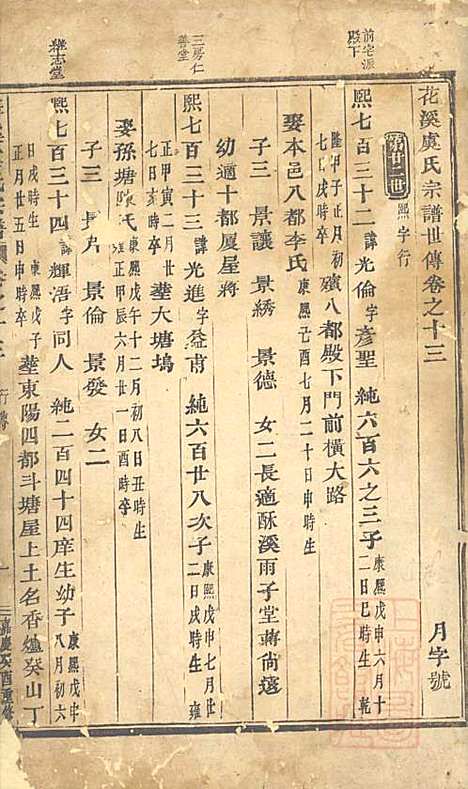 花溪虞氏宗譜世傳卷之十三 月字號
第廿二世 熙字行
前宅派殿下
熙七百三十二 諱光倫字彥聖 純六百六之三子 康熙戊申六月十二日巳時生 乾
隆甲子正月初七日戌時卒 殯八都殿下門前橫大路
娶本邑八都李氏 康熙己酉七月二十日申時生
子三 景讓 景綉 景德 女二長適酥溪雨子堂蔣尚遠
幼適十都厦屋蔣
三房仁善堂
熙七百三十三 諱光進字益甫 純六百廿八次子 康熙戊申七月廿二日戌時生 雍
正甲寅二月廿七日亥時卒 塟大塘塢
娶孫塘 氏 康熙戊午十二月初八日丑時生 正甲辰六月廿一日酉時卒
子三 景倫 景發 女二
雜志堂
熙七百三十四 諱輝浯字同人 純二百四十四庠生幼子 康熙戊申八月初六
日戌時生 康熙戊子正月廿五日申時卒 塟東陽四都斗塘屋上土名香爐癸山丁
嘉慶 酉重修